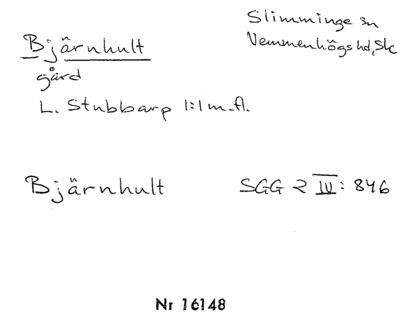 Bjärnhult
gård
L. Stubbarp 1:1 m.fl.
Slimminge sn
Vemmenhögs hd, Sk
Bjärnhult SGG 2 IV: 846
Nr 16148